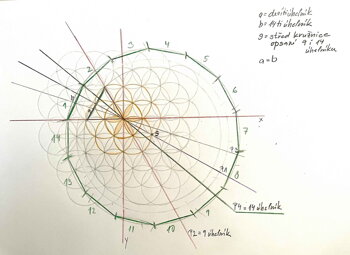 a = devítiúhelník
b = 14ti úhelník
g = střed kružnice
opsaní 9 i 14
úhelníku
a = b
3
4
5
2
6
1
b
x
7
14
13
8
12
9
11
10
φ4 = 14 úhelník
φ2 = 9 úhelník
y